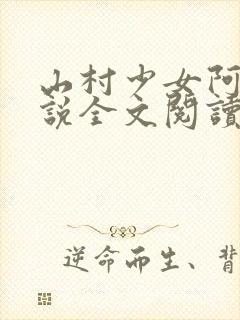 山村少女阿
説全文閱讀
逆命而生、背